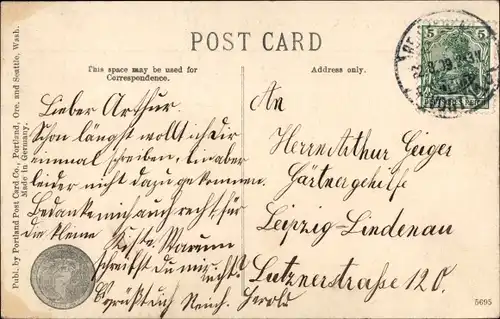 POST CARD
This space may be used for
Correspondence.
Address only.
Publ. by Portland Post Card Co., Portland, Ore. and Seattle, Wash.
Made in Germany.
Lieber Arthur.
Schon längst wollt ich dir
einmal schreiben, bin aber
leider nicht dazu gekommen.
Bedanke mich auch recht für
die kleine Kiste. Warum
schreibst du mir nicht?
Es grüßt dich
An
Herrn Arthur Geiger
Gärtnergehilfe
Leipzig-Lindenau
Lutznerstraße 120.
5
5
5695